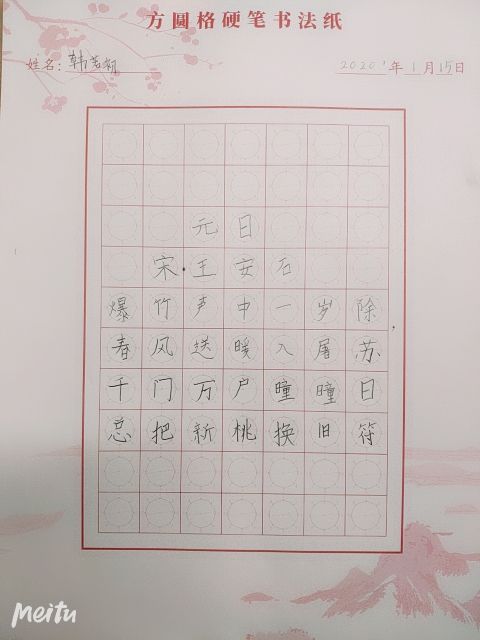 方圆格硬笔书法纸
姓名：韩若初 2020年1月15日
元日
宋·王安石
爆竹声中一岁除
春风送暖入屠苏
千门万户曈曈日
总把新桃换旧符
Meitu